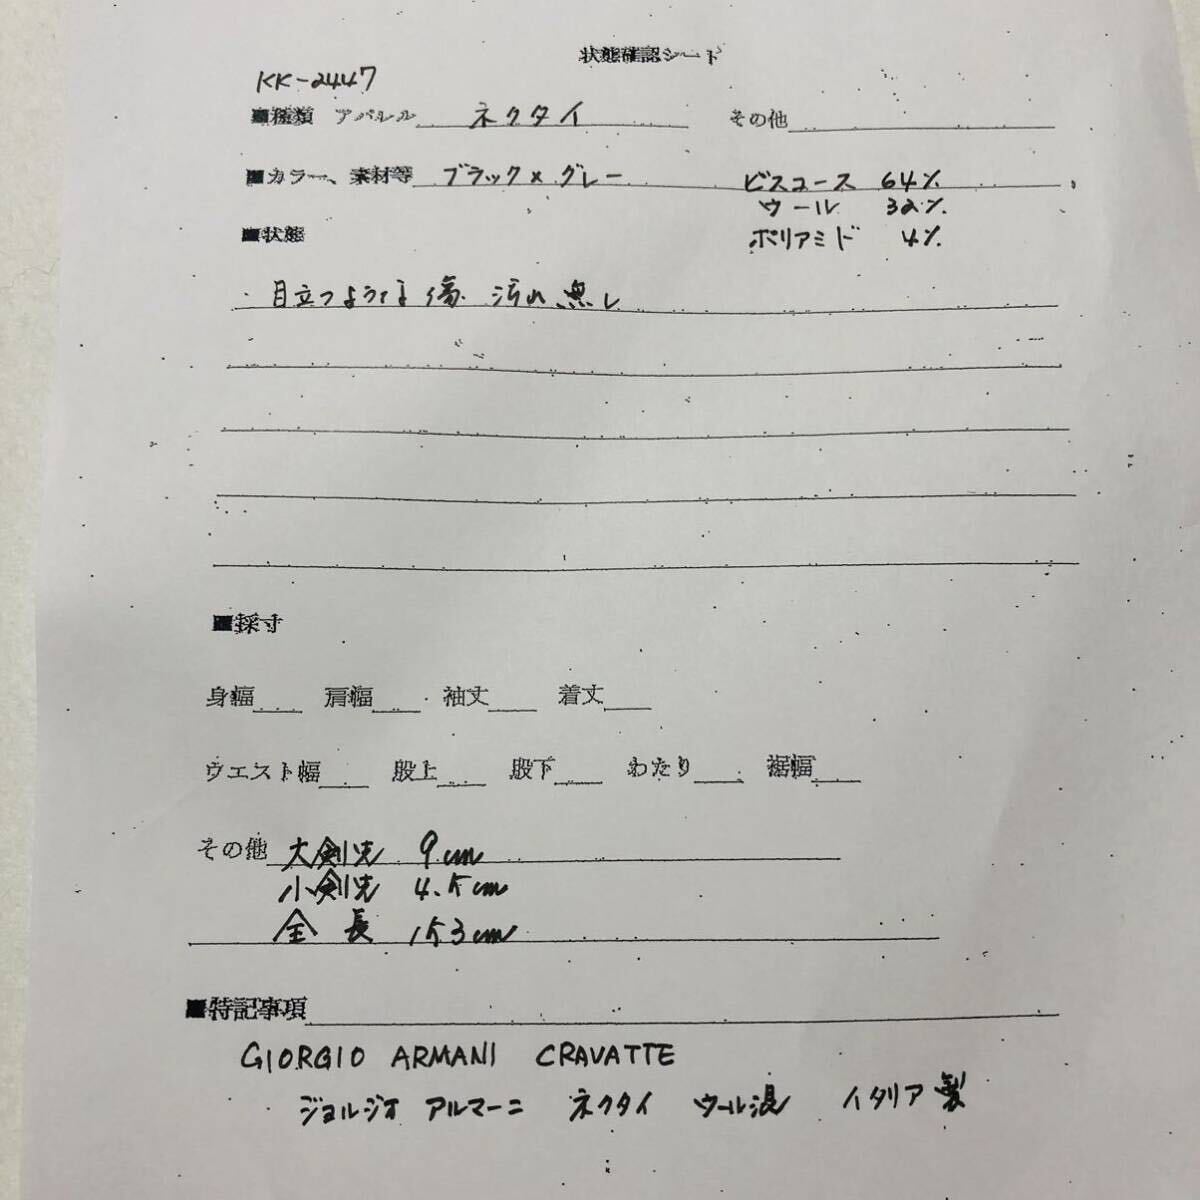 状態確認シート
KK-2447
■種類 アパレル ネクタイ その他
■カラー、素材等 ブラック×グレー ビスコース 64%
ウール 32%
■状態 ポリアミド 4%
・目立つような傷 汚れ無し
■採寸
身幅 肩幅 袖丈 着丈
ウエスト幅 股上 股下 わたり 裾幅
その他 大剣先 9cm
小剣先 4.5cm
全長 153cm
■特記事項
GIORGIO ARMANI CRAVATTE
ジョルジオ アルマーニ ネクタイ ウール混 イタリア製